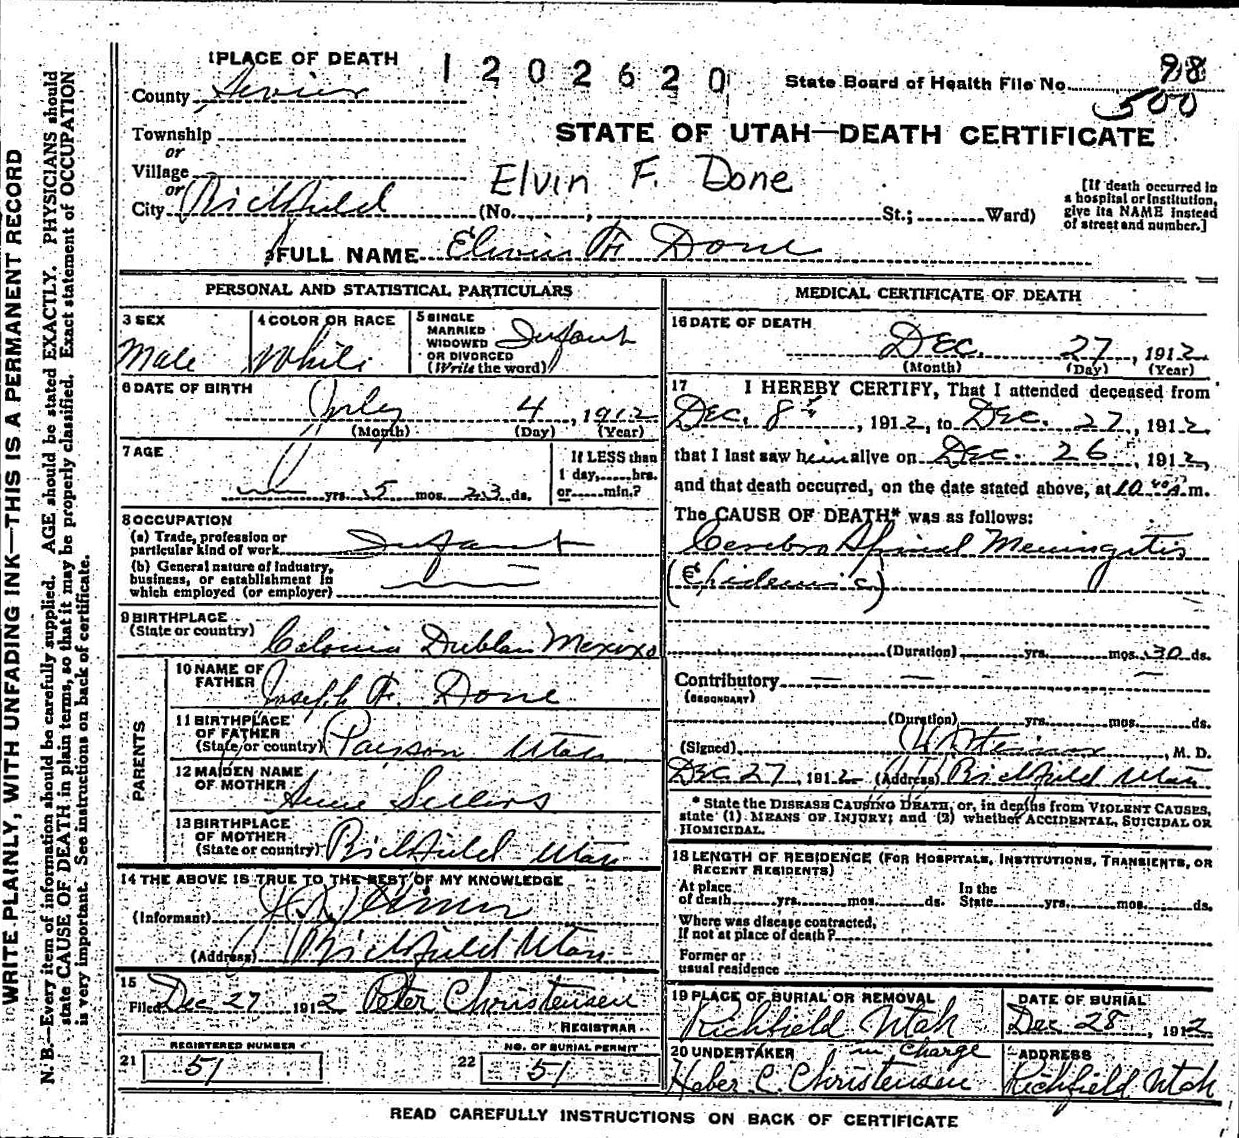 1 PLACE OF DEATH
1202620
State Board of Health File No. 98
500
County Sevier
STATE OF UTAH—DEATH CERTIFICATE
Township
or
Village
or
City Richfield
Elvin F. Done
(No. , St.; Ward)
[If death occurred in a hospital or institution, give its NAME instead of street and number.]
2 FULL NAME Elvin F. Done
PERSONAL AND STATISTICAL PARTICULARS
3 SEX
Male
4 COLOR OR RACE
White
5 SINGLE MARRIED WIDOWED OR DIVORCED (Write the word)
Infant
6 DATE OF BIRTH
July 4, 1912
(Month) (Day) (Year)
7 AGE
— yrs. 5 mos. 23 ds.
If LESS than 1 day, hrs. or min.?
8 OCCUPATION
(a) Trade, profession or particular kind of work Infant
(b) General nature of industry, business, or establishment in which employed (or employer) —
9 BIRTHPLACE
(State or country) Colonia Dublan Mexico
PARENTS
10 NAME OF FATHER Joseph F. Done
11 BIRTHPLACE OF FATHER (State or country) Payson Utah
12 MAIDEN NAME OF MOTHER Annie Sellers
13 BIRTHPLACE OF MOTHER (State or country) Richfield Utah
14 THE ABOVE IS TRUE TO THE BEST OF MY KNOWLEDGE
(Informant)
(Address) Richfield Utah
15
Filed Dec 27 1912 Peter Christensen
REGISTRAR
21 REGISTERED NUMBER
51
22 NO. OF BURIAL PERMIT
51
MEDICAL CERTIFICATE OF DEATH
16 DATE OF DEATH
Dec. 27, 1912
(Month) (Day) (Year)
17 I HEREBY CERTIFY, That I attended deceased from
Dec. 8th, 1912, to Dec. 27, 1912.
that I last saw him alive on Dec. 26, 1912,
and that death occurred, on the date stated above, at 10 40 A.m.
The CAUSE OF DEATH* was as follows:
Cerebro Spinal Meningitis
(Epidemic)
(Duration) yrs. mos. 30 ds.
Contributory — — — —
(SECONDARY)
(Duration) yrs. mos. ds.
(Signed) , M. D.
Dec 27, 1912 (Address) Richfield Utah
* State the DISEASE CAUSING DEATH, or, in deaths from VIOLENT CAUSES, state (1) MEANS OF INJURY; and (2) whether ACCIDENTAL, SUICIDAL OR HOMICIDAL.
18 LENGTH OF RESIDENCE (FOR HOSPITALS, INSTITUTIONS, TRANSIENTS, OR RECENT RESIDENTS)
At place of death yrs. mos. ds. In the State yrs. mos. ds.
Where was disease contracted,
If not at place of death?
Former or
usual residence
19 PLACE OF BURIAL OR REMOVAL
Richfield Utah
DATE OF BURIAL
Dec 28, 1912
20 UNDERTAKER in charge
Heber C. Christensen
ADDRESS
Richfield Utah
READ CAREFULLY INSTRUCTIONS ON BACK OF CERTIFICATE
WRITE PLAINLY, WITH UNFADING INK—THIS IS A PERMANENT RECORD
N. B.—Every item of information should be carefully supplied. AGE should be stated EXACTLY. PHYSICIANS should
state CAUSE OF DEATH in plain terms, so that it may be properly classified. Exact statement of OCCUPATION
is very important. See instructions on back of certificate.